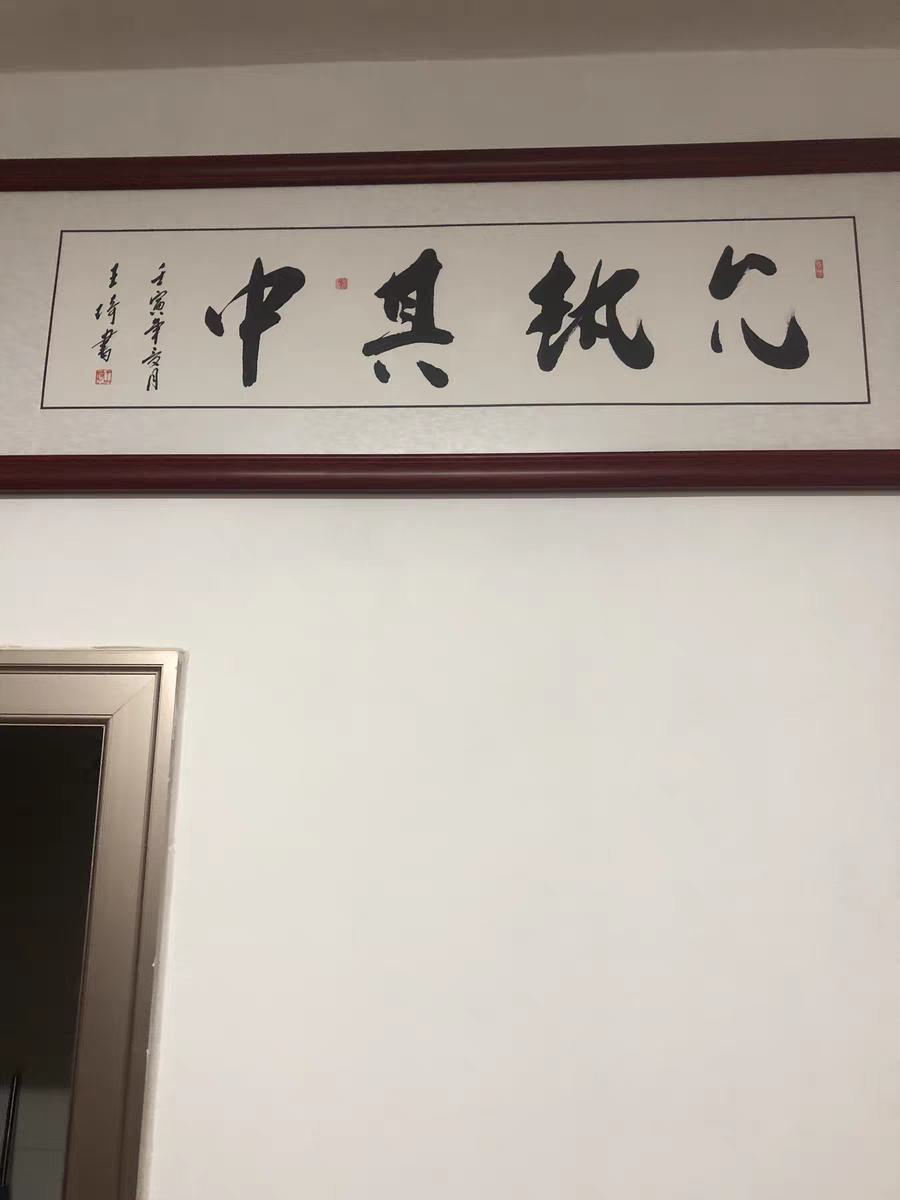 允執其中
壬寅年亥月
王琦書